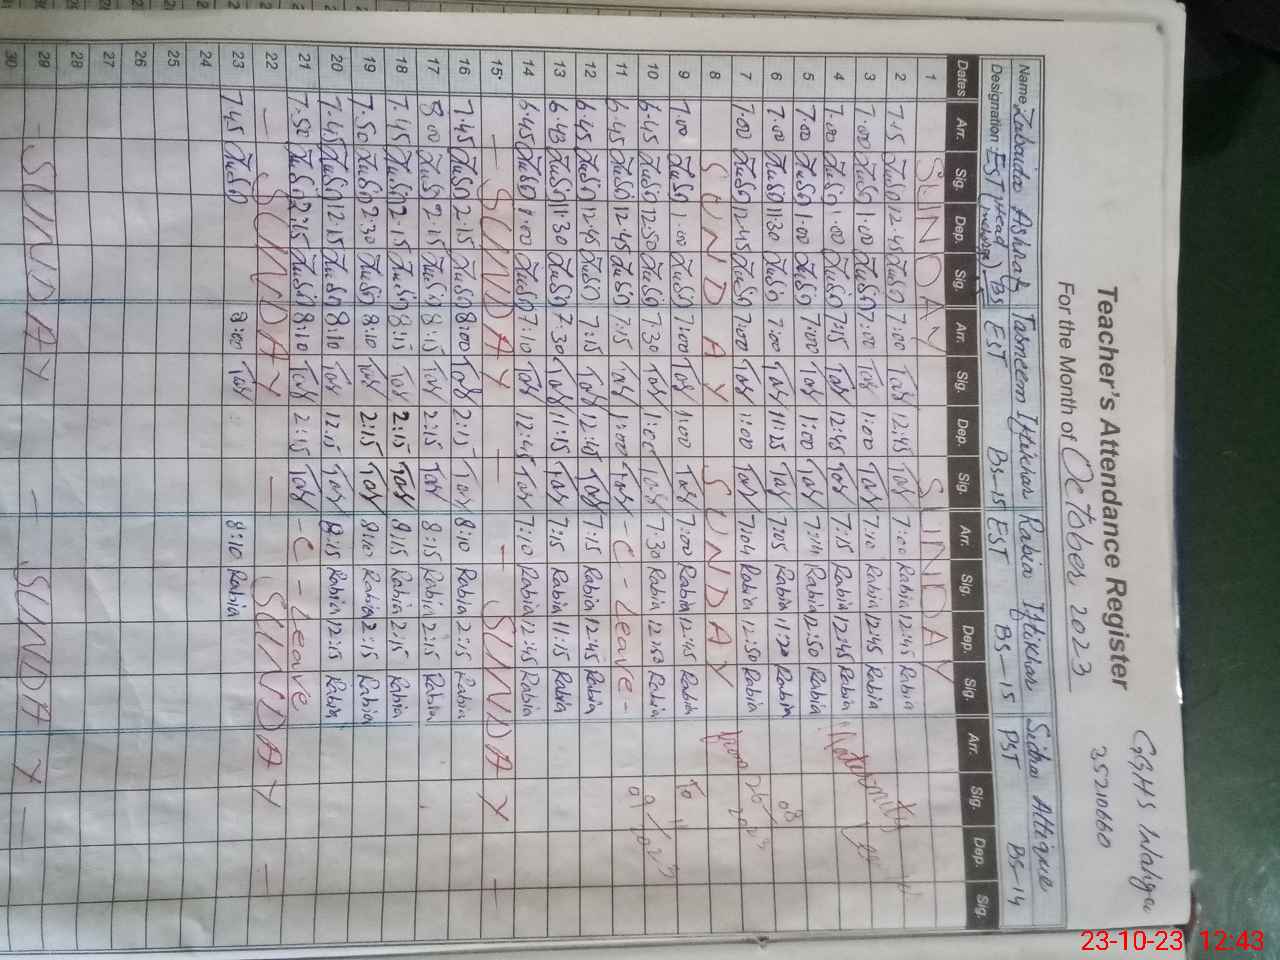 GGHS Wahga
35210660
Teacher's Attendance Register
For the Month of October 2023
Name Zubaida Ashraf Tasneem Iftikhar Rabia Iftikhar Sidra Attique
Designation EST (Head) EST BS-15 EST BS-15 PST BS-14
Dates Arr. Sig. Dep. Sig. Arr. Sig. Dep. Sig. Arr. Sig. Dep. Sig. Arr. Sig. Dep. Sig.
1 SUNDAY SUNDAY
2 7.15 12.45 7:00 12:45 7:00 Rabia 12:45 Rabia
3 7.00 1.00 7:00 1:00 7:10 Rabia 12:45 Rabia
4 7.00 1.00 7:15 12:45 7:15 Rabia 12:45 Rabia
5 7.00 1.00 7:00 1:00 Rabia 12:50 Rabia
6 7.00 11:30 7:00 11:25 7:05 Rabia 11:20 Rabia
7 7.00 12.45 7:00 1:00 7:04 Rabia 12:50 Rabia
8 SUNDAY SUNDAY
9 7.00 1.00 7:00 1:00 7:00 Rabia 12:45 Rabia
10 6.45 12:50 7:30 1:00 7:30 Rabia 12:50 Rabia
11 6.45 12.45 7:15 1:00 - C - Leave -
12 6.45 12.45 7:15 12:45 7:15 Rabia 12:45 Rabia
13 6.43 11:30 7:30 11:15 7:15 Rabia 11:15 Rabia
14 6.45 1:00 7:10 12:45 7:10 Rabia 12:45 Rabia
15 - SUNDAY - - SUNDAY -
16 7.45 2.15 8:00 2:15 8:10 Rabia 2:15 Rabia
17 8.00 2.15 8:15 2:15 8:15 Rabia 2:15 Rabia
18 7.45 2.15 8:15 2:15 8:15 Rabia 2:15 Rabia
19 7.50 2.30 8:10 2:15 8:10 Rabia 2:15 Rabia
20 7.45 12.15 8:10 12:15 8:15 Rabia 12:15 Rabia
21 7.50 2:15 8:10 2:15 - C - Leave
22 - SUNDAY - SUNDAY -
23 7.45 8:00 8:10 Rabia
24
25
26
27
28
29 - SUNDAY - SUNDAY =
30
Maternity
from 26 08 2023
to 11 09 2023
23-10-23 12:43